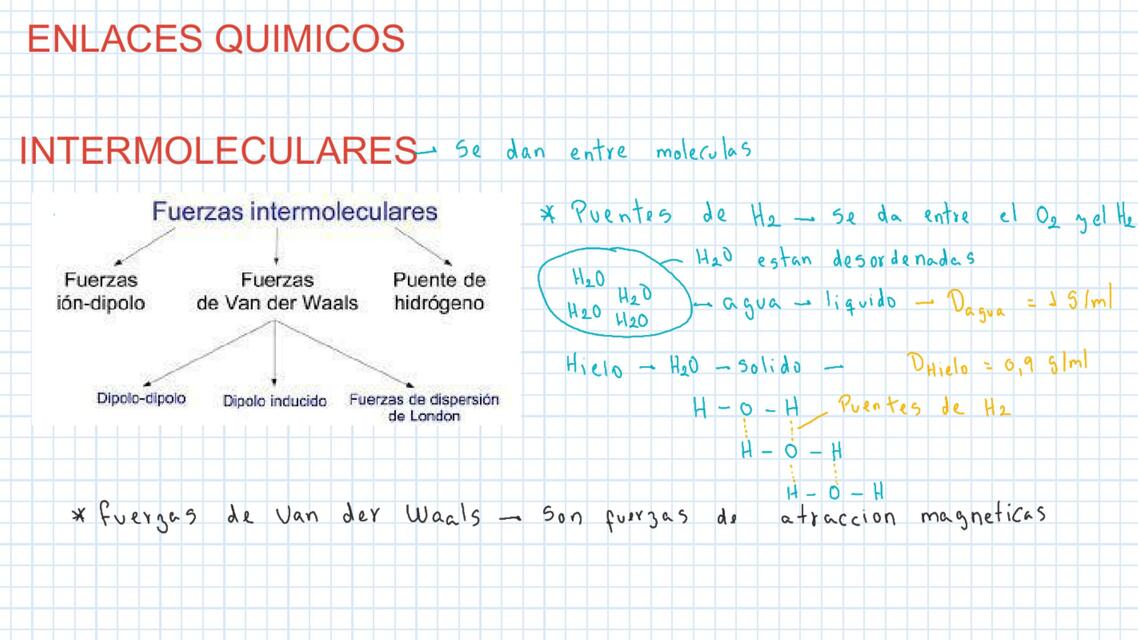 ENLACES QUIMICOS
INTERMOLECULARES → Se dan entre moleculas
Fuerzas intermoleculares
Fuerzas ión-dipolo
Fuerzas de Van der Waals
Puente de hidrógeno
Dipolo-dipolo
Dipolo inducido
Fuerzas de dispersión de London
* Puentes de H2 → Se da entre el O2 y el H2
H2O estan desordenadas
H2O
H2O
H2O
H2O
→ agua → liquido → Dagua = 1 g/ml
Hielo → H2O → solido — DHielo = 0,9 g/ml
H - O - H Puentes de H2
H - O - H
H - O - H
* fuerzas de Van der Waals → Son fuerzas de atraccion magneticas